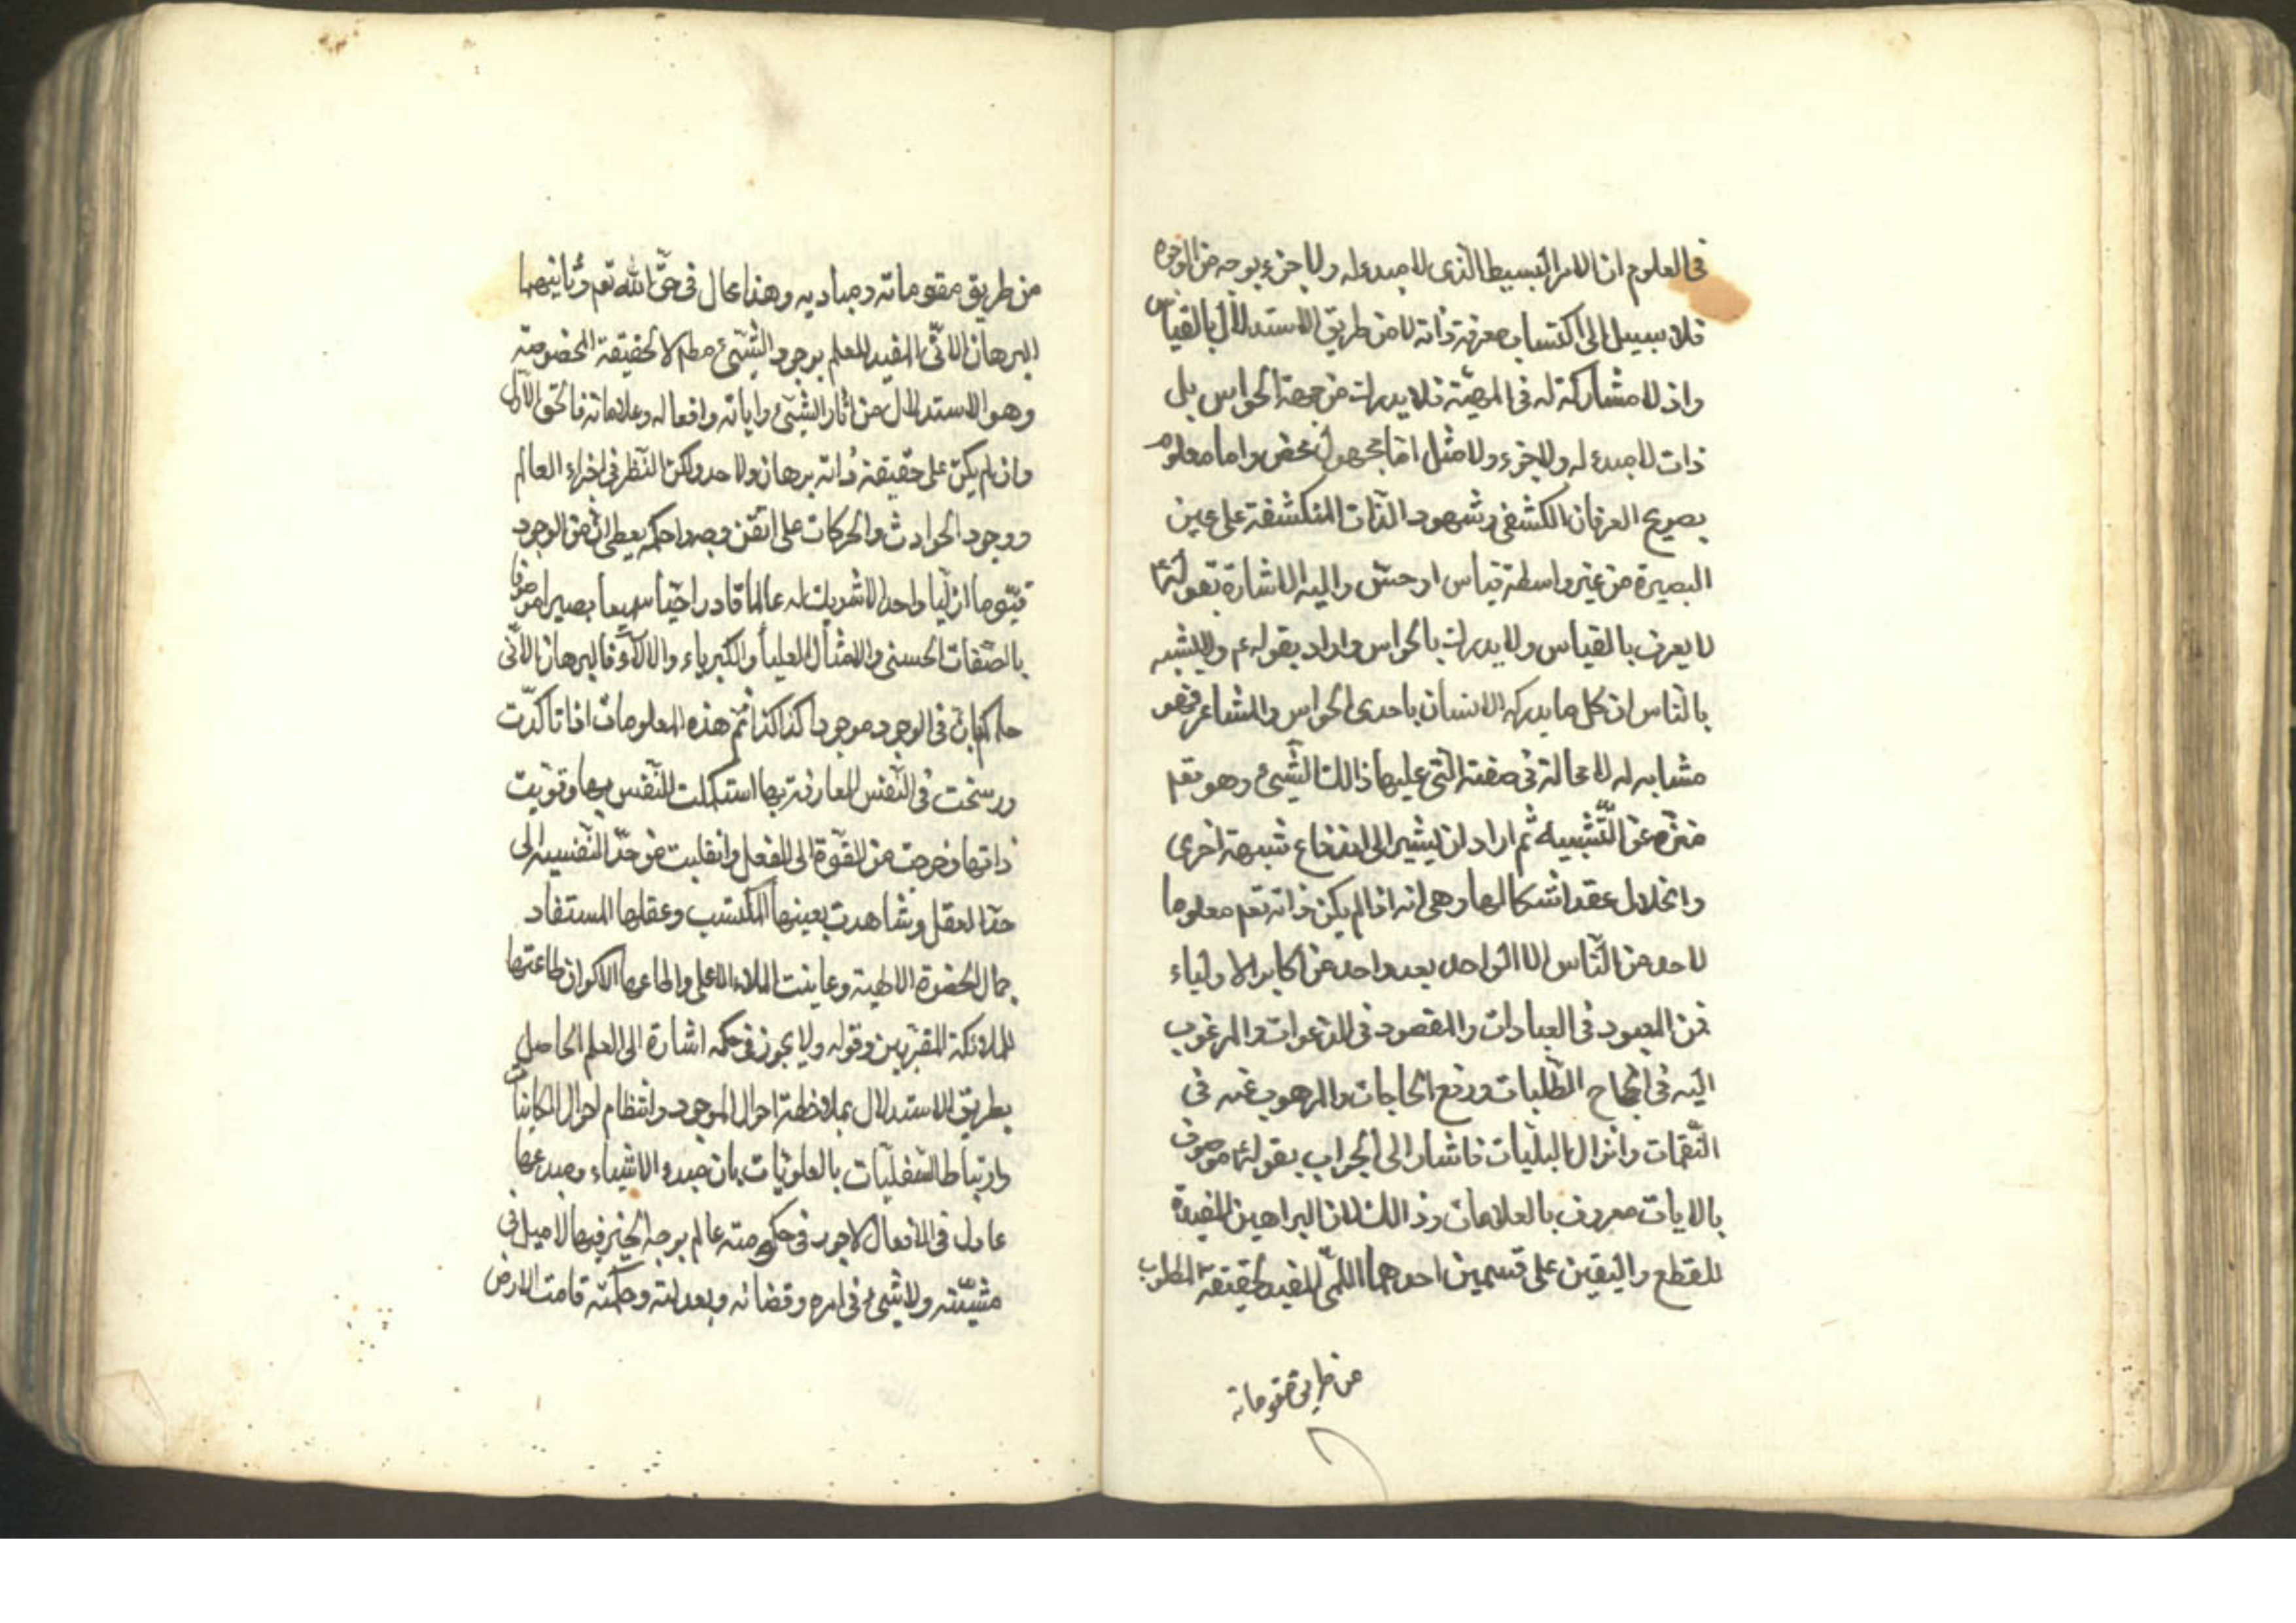 فى العلوم ان الامر البسيط الذى لا مبدء له ولا جزء بوجه من الوجوه
فلا سبيل الى اكتساب معرفة ذاته لا من طريق الاستدلال بالقياس
واذ لا مشاركة له فى المهيّة فلا يدرك من جهة الحواس بل
ذات لا مبدء له ولا جزء ولا مثل امّا مجهول محض واما معلوم
بصريح العرفان الكشفى وشهود الذات المنكشفة على عين
البصيرة من غير واسطة قياس او حسّ واليه الاشارة بقوله عم
لا يعرف بالقياس ولا يدرك بالحواس واراد بقوله عم ولا يشبه
بالناس ان كل ما يدركه الانسان باحدى الحواس والمشاعر فهو
مشابه له لا محالة فى صفته التى عليها ذالك الشّئ وهو تعم
منزه عن التّشبيه ثم اراد ان يشير الى اندفاع شبهة اخرى
وانحلال عقد اشكالها وهى انه اذا لم يكن ذاته تعم معلوما
لاحد من النّاس الا الواحد بعد واحد من اكابر الاولياء
فمن المعبود فى العبادات والمقصود فى الدعوات والمرغوب
اليه فى انجاح الطّلبات ورفع الحاجات والمرهوب عنه فى
النّقمات وانزال البليّات فاشار الى الجواب بقوله عم موصوف
بالايات معروف بالعلامات وذالك لان البراهين المفيدة
للقطع واليقين على قسمين احدهما اللمّى المفيد لحقيقة المطلوب
من طريق مقوماته
من طريق مقوماته ومباديه وهذا محال فى حقّ الله تعم وثانيهما
البرهان الانّى المفيد للعلم بوجود الشّئ مطم لا لحقيقة المخصوصة
وهو الاستدلال من اثار الشئ واياته وافعاله وعلاماته فالحق الاول
وان لم يكن على حقيقة ذاته برهان ولا حد ولكن النّظر فى اجزاء العالم
ووجود الحوادث والحركات على اتقن وجه واحكمه يعطى انّ من الوجود
قيّوما ازليّا واحدا لا شريك له عالما قادرا حيّا سميعا بصيرا موصوفا
بالصّفات الحسنى والامثال العليا والكبرياء والالاء فالبرهان الانّى
حاكم بان فى الوجود موجودا كذا كذا ثم هذه المعلومات اذا تاكدّت
ورسخت فى النّفس العارفة بها استكملت النّفس بها وقويت
ذاتها وخرجت من القوّة الى الفعل وانقلبت من حدّ النّفسية الى
حدّ العقل وشاهدت بعينها المكتسب وعقلها المستفاد
جمال الحضرة الالهية وعاينت الملاء الاعلى واطاعها الاكوان طاعتها
للملائكة المقرّبين وقوله ولا يجوز فى حكمه اشارة الى العلم الحاصل
بطريق الاستدلال بملاحظة احوال الموجود وانتظام احوال الكاينات
وارتباط السّفليّات بالعلويّات بان مبدء الاشياء ومبدعها
عادل فى الافعال لا جور فى حكومته عالم بوجه الخير فيها لا ميل فى
مشيّته ولا شئ فى امره وقضائه وبعدلته وحكمته قامت الارض